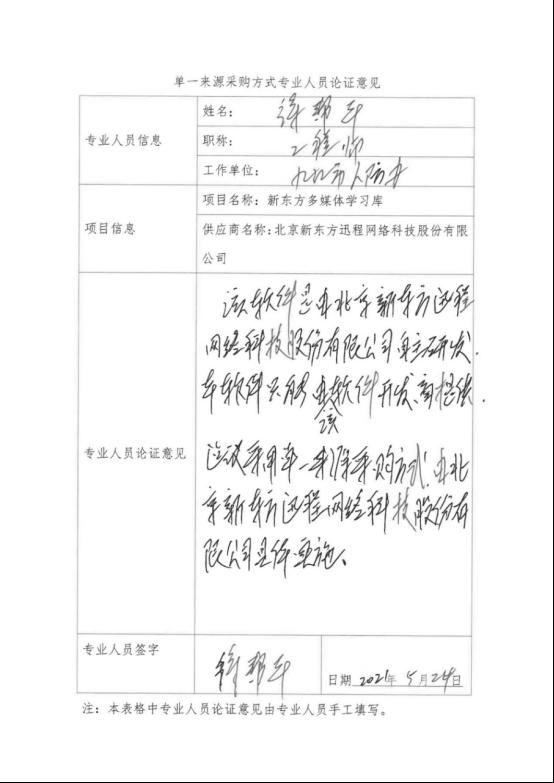 单一来源采购方式专业人员论证意见
专业人员信息
姓名：
职称：工程师
工作单位：九江市人防办
项目信息
项目名称：新东方多媒体学习库
供应商名称：北京新东方迅程网络科技股份有限
公司
专业人员论证意见
该软件是由北京新东方迅程
网络科技股份有限公司自主研发，
本软件只能由该软件开发商提供，
建议采用单一来源采购方式，由北
京新东方迅程网络科技股份有
限公司具体实施。
专业人员签字
日期 2021年 5月24日
注：本表格中专业人员论证意见由专业人员手工填写。